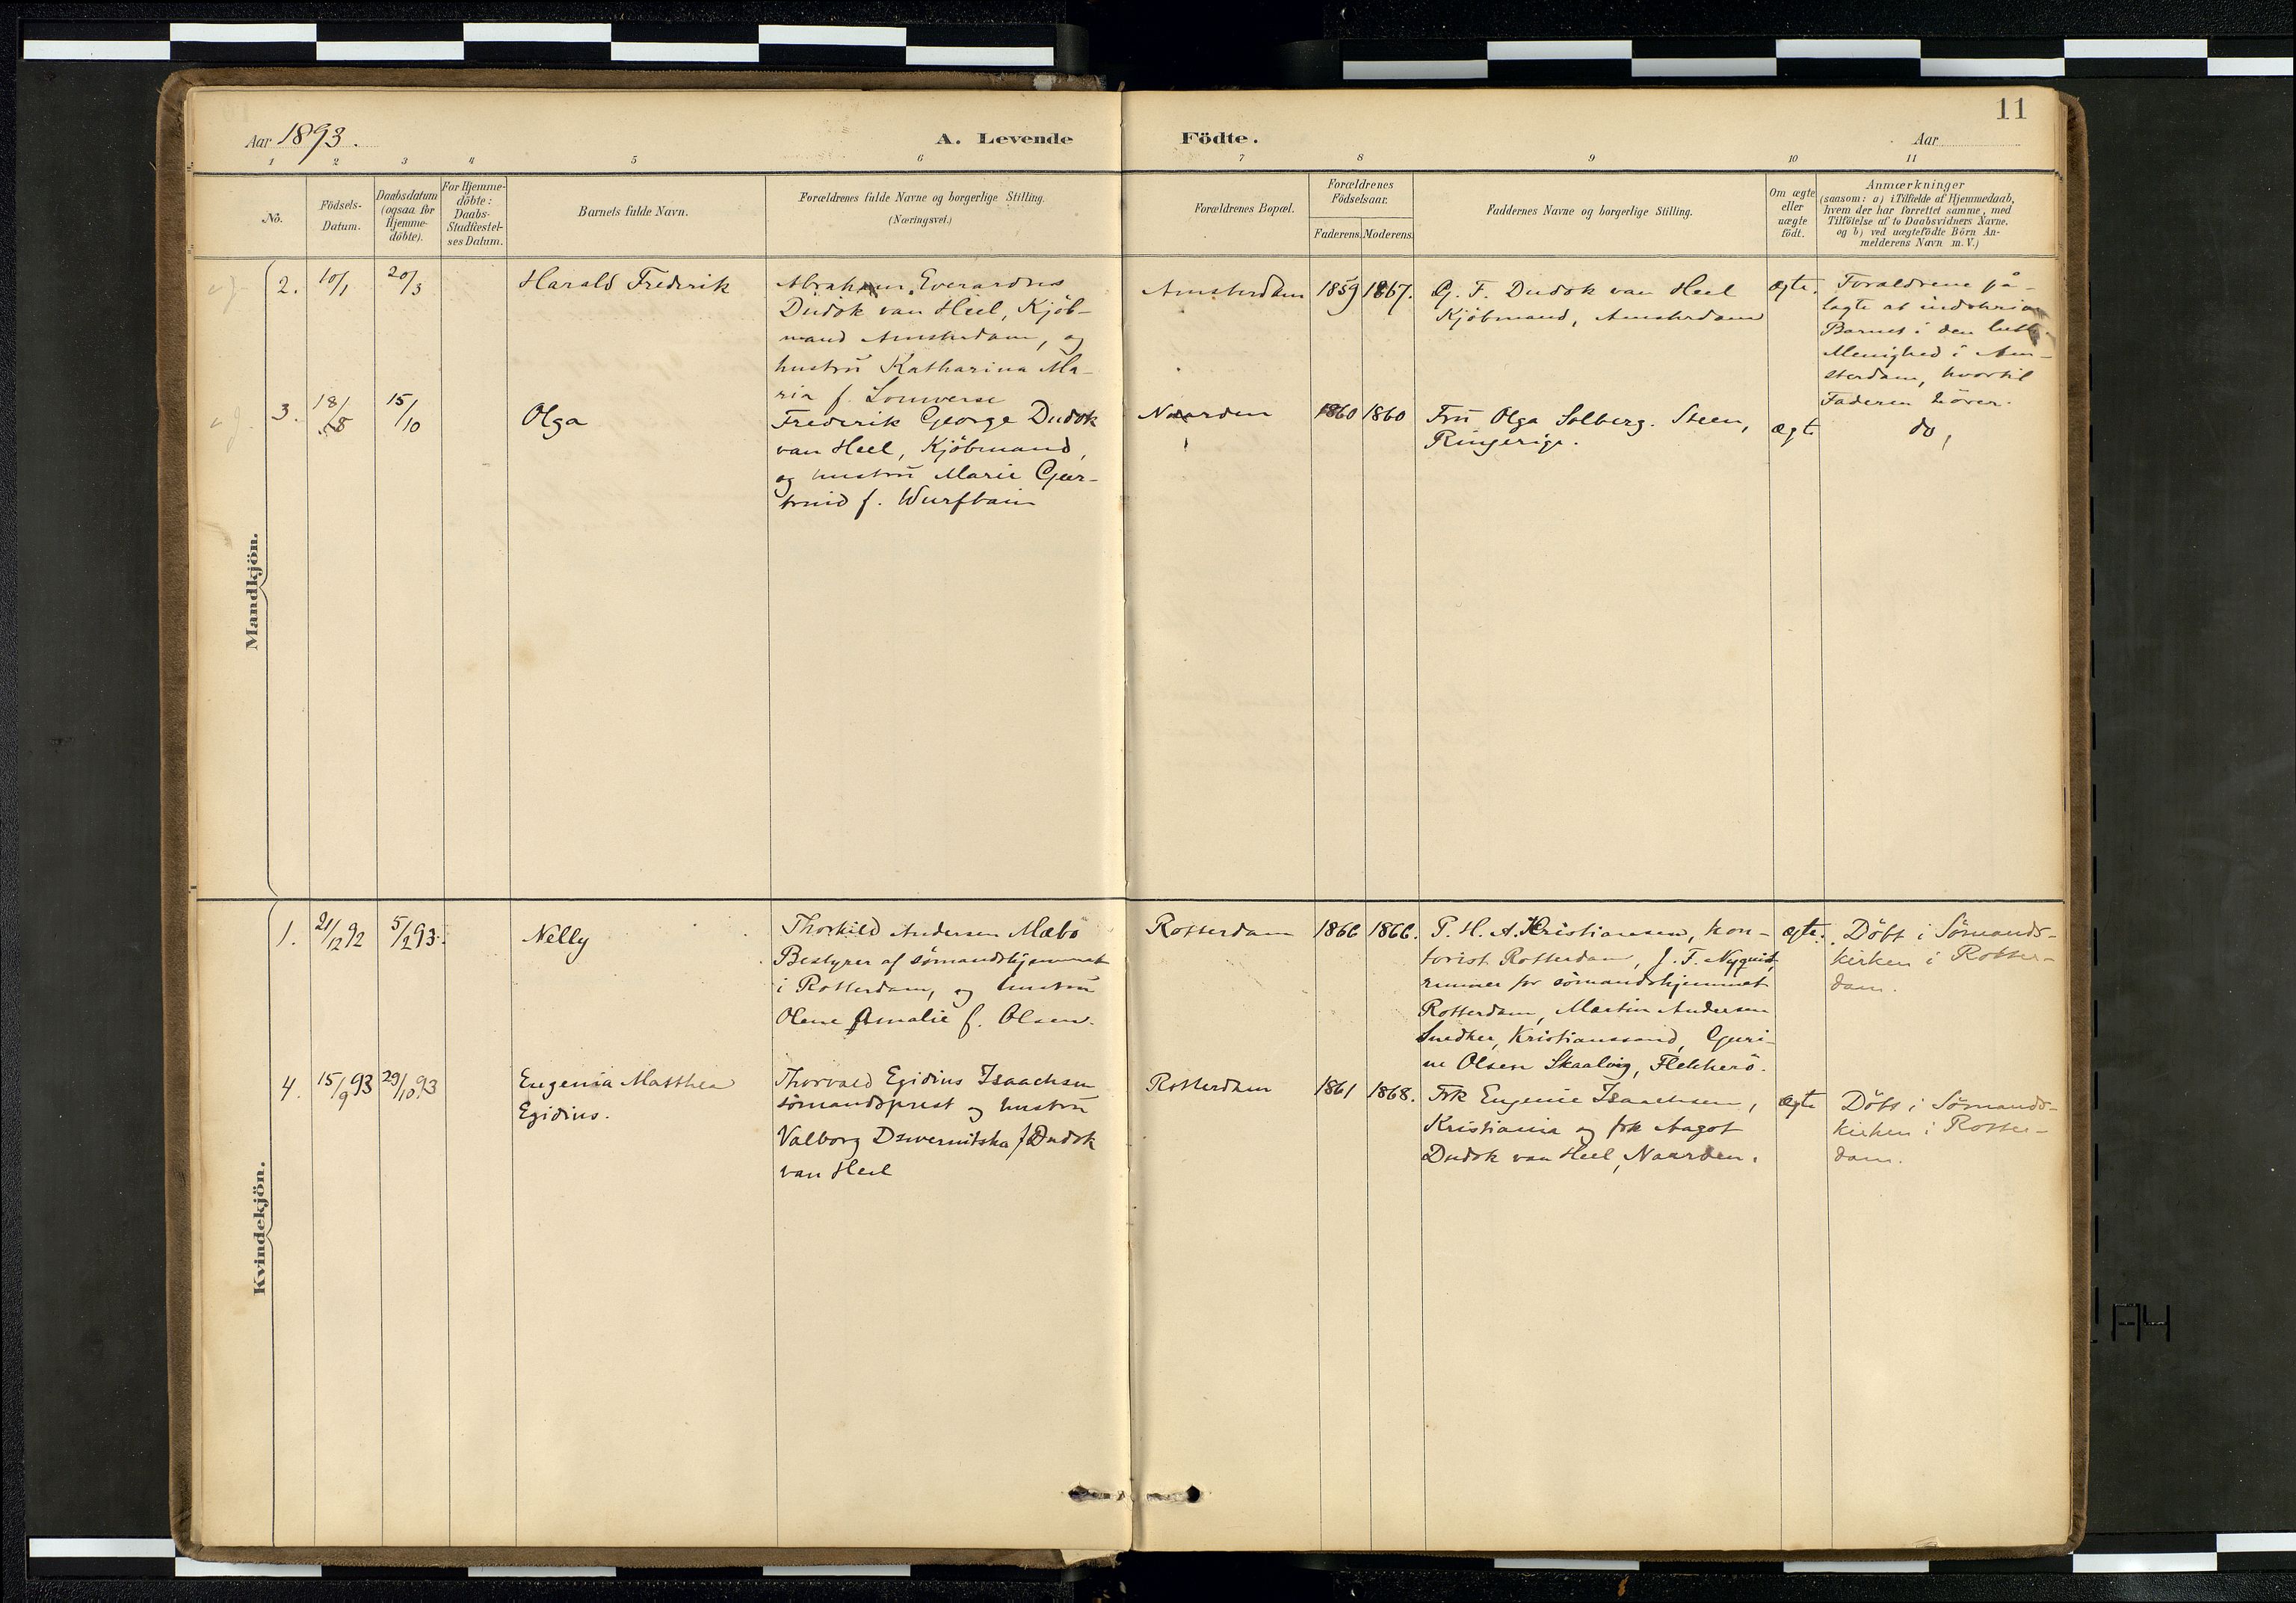 11
Aar 1893.
A. Levende Födte.
Aar
1 2 3 4 5 6 7 8 9 10 11
No.
Födsels-
Datum.
Daabsdatum
(ogsaa for
Hjemme-
döbte).
For Hjemme-
döbte:
Daabs-
Stadfæstel-
ses Datum.
Barnets fulde Navn.
Forældrenes fulde Navne og borgerlige Stilling.
(Næringsvei.)
Forældrenes Bopæl.
Forældrenes
Födselsaar.
Faderens. Moderens.
Faddernes Navne og borgerlige Stilling.
Om ægte
eller
uægte
födt.
Anmærkninger
(saasom: a) i Tilfælde af Hjemmedaab,
hvem der har forrettet samme, med
Tilföielse af to Daabsvidners Navne.
og b) ved uægtefödte Börn An-
melderens Navn m. V.)
Mandkjön.
2.
10/1
20/3
Harald Frederik
Abraham Everardus
Dudok van Heel, Kjöb-
mand Amsterdam, og
hustru Katharina Ma-
ria f.
Amsterdam
1859
1867.
G. F. Dudok van Heel
Kjöbmand, Amsterdam
ægte.
Foraldrene på-
lagte at indskrive
Barnet i den luth.
Menighed i Am-
sterdam, hvortil
Faderen hörer.
3.
18/8
15/10
Olga
Frederik George Dudok
van Heel, Kjöbmand,
og hustru Marie Geer-
truid f. Wurfbain
Naarden
1860
1860
Fru Olga Solberg. Steen,
Ringerige.
ægte
do,
Kvindekjön.
1.
21/12 92
5/2 93.
Nelly
Thorkild Andersen Mæbö
Bestyrer af sömandshjemmet
i Rotterdam, og hustru
Olene Amalie f. Olsen.
Rotterdam
1866
1866.
P. H. A. Kristiansen, kon-
torist Rotterdam, J. F. Nyquist,
runner for sömandshjemmet
Rotterdam, Martin Andersen
Snedker, Kristianssand, Guri-
ne Olsen Skaalvig, Flekkerö.
ægte.
Döbt i Sömands-
kirken i Rotter-
dam.
4.
15/9 93
29/10 93
Eugenia Matthea
Egidius.
Thorvald Egidius Isaachsen
sömandsprest og hustru
Valborg Dzwernitska f. Dudok
van Heel
Rotterdam
1861
1868.
Frk Eugenie Isaachsen,
Kristiania og frk Aagot
Dudok van Heel, Naarden.
ægte
Döbt i Sömands-
kirken i Rotter-
dam.